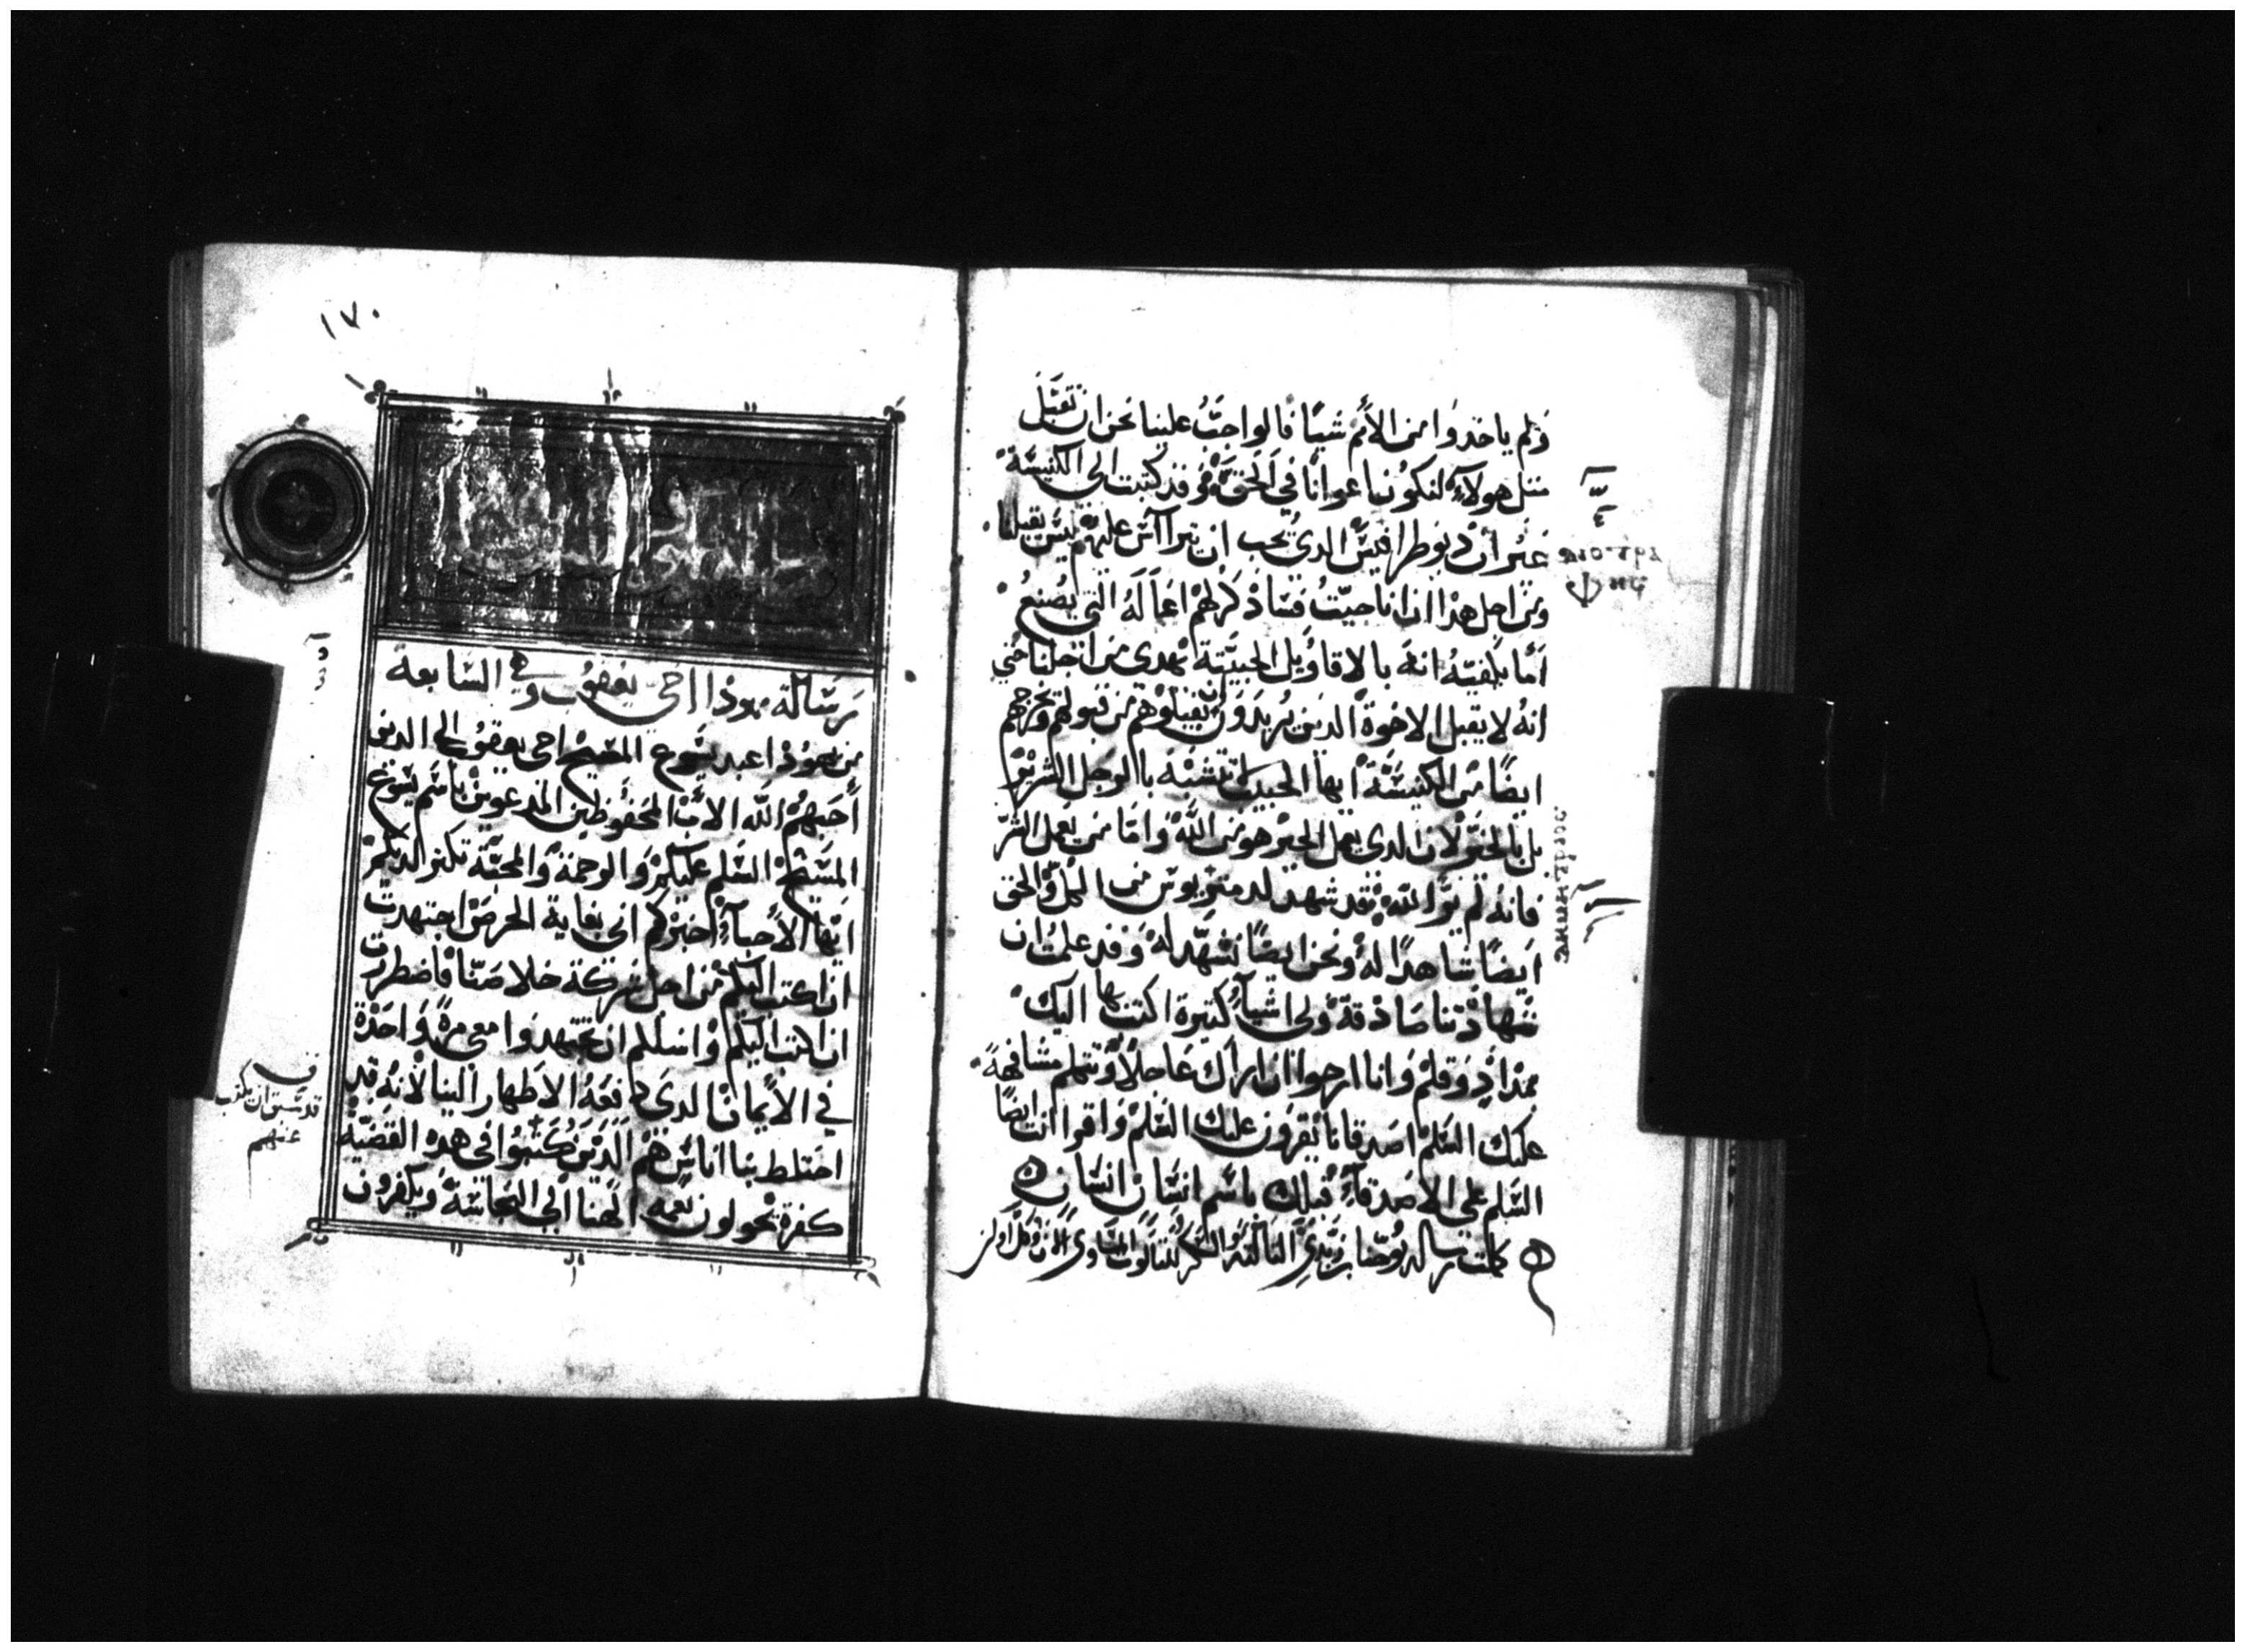 ولم ياخدوا من الأمم شيًا فالواجب علينا نحن ان نقبل
مثل هولاء لنكون اعوانًا في الحق وقد كتبت الى الكنيسة
غير ان ديوطرافيس الدى يحب ان يتراآس عليهم ليس يقبلنا
ومن اجل هذا ان انا جيت فساذكر لهم اعماله التي يصنع
اما يكفيه انه بالاقاويل الخبيثة يهدى من اجلنا حتي
انه لا يقبل الاخوة الدين يريدون يقبلوهم من قبولهم ويخرجهم
ايضًا من الكنيسة ايها الحبيب لا تتشبه بالرجل الشرير
بل بالخير لان الدى يعمل الخير هو من الله واما من يعمل الشر
فانه لم ير الله فقد شهد لدمتريوس من الكل والحق
ايضًا شاهدًا له ونحن ايضًا نشهد له وقد علمت ان
شهادتنا صادقة ولى اشيآء كثيرة اكتب بها اليك
بمداد وقلم وانا ارجوا ان اراك عاجلًا ونتكلم مشافهة
عليك السلم اصدقانا يقرون عليك السلم واقرا انت ايضًا
السلم على الاصدقآء قبلك باسم انسان انسان
كملت رسالة يوحنا بن زبدى الثالثة والشكر للثالوت المتساوى الان وكل اوان
١٧٠
رسالة يهودا اخى يعقوب وهي السابعة
من يهودا عبد يسوع المسيح اخى يعقوب الى الدين
أحبهم الله الاب المحفوظين المدعوين باسم يسوع
المسيح السلم عليكم والرحمة والمحبة تكثر لديكم
ايها الأحبآء اخبركم انى بغاية الحرص اجتهدت
ان اكتب اليكم من اجل شركة خلاصنا فاضطررت
ان اكتب اليكم واسلكم ان تجتهدوا معى مرة واحدة
في الأيمان الدى دفعه الاطهار الينا لانه قد
اختلط بنا اناس هم الدين كتبوا فى هده القضية
كفرة يحولون نعمه الهنا الى النجاسة ويكفرون
قد سبق ان يكتب
عنهم